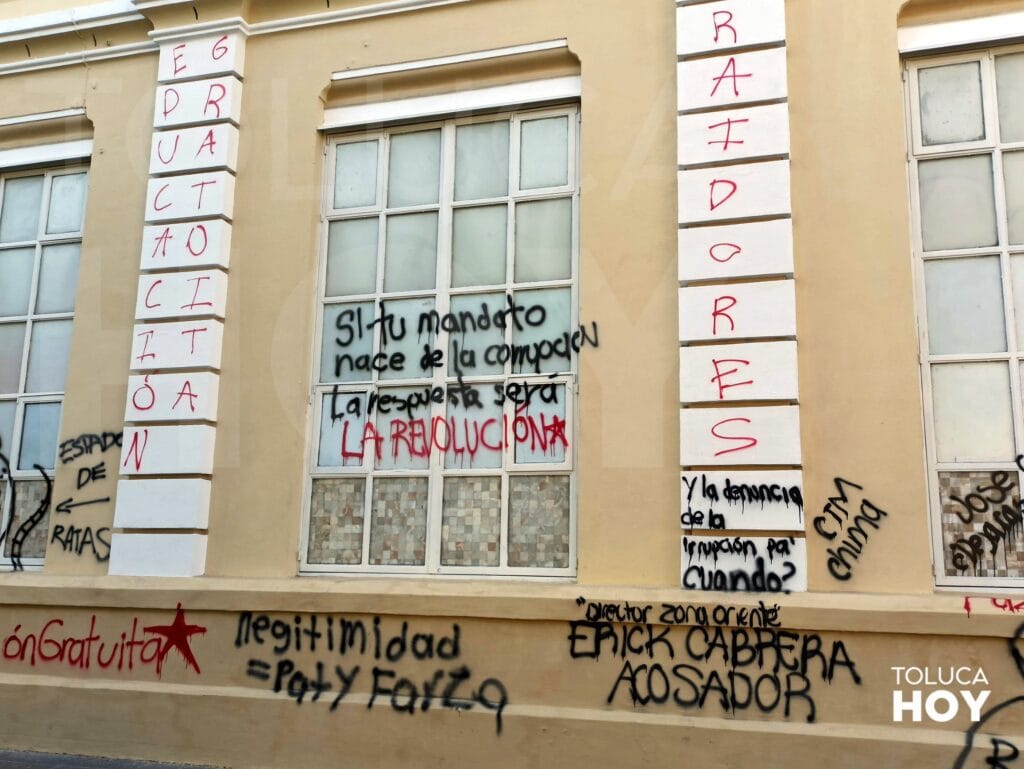 EDUCACIÓN
GRATOITA
RAIDORES
SI tu mandato
nace de la corrupción
La respuesta será
LA REVOLUCIÓN
ESTADO
DE
RATAS
Y la denuncia
de la
irrupción pa'
cuando?
CTM
china
Jose
ónGratuita
negitimidad
=Paty
"Director zona oriente"
ERICK CABRERA
ACOSADOR
TOLUCA
HOY
TOLUCA
HOY